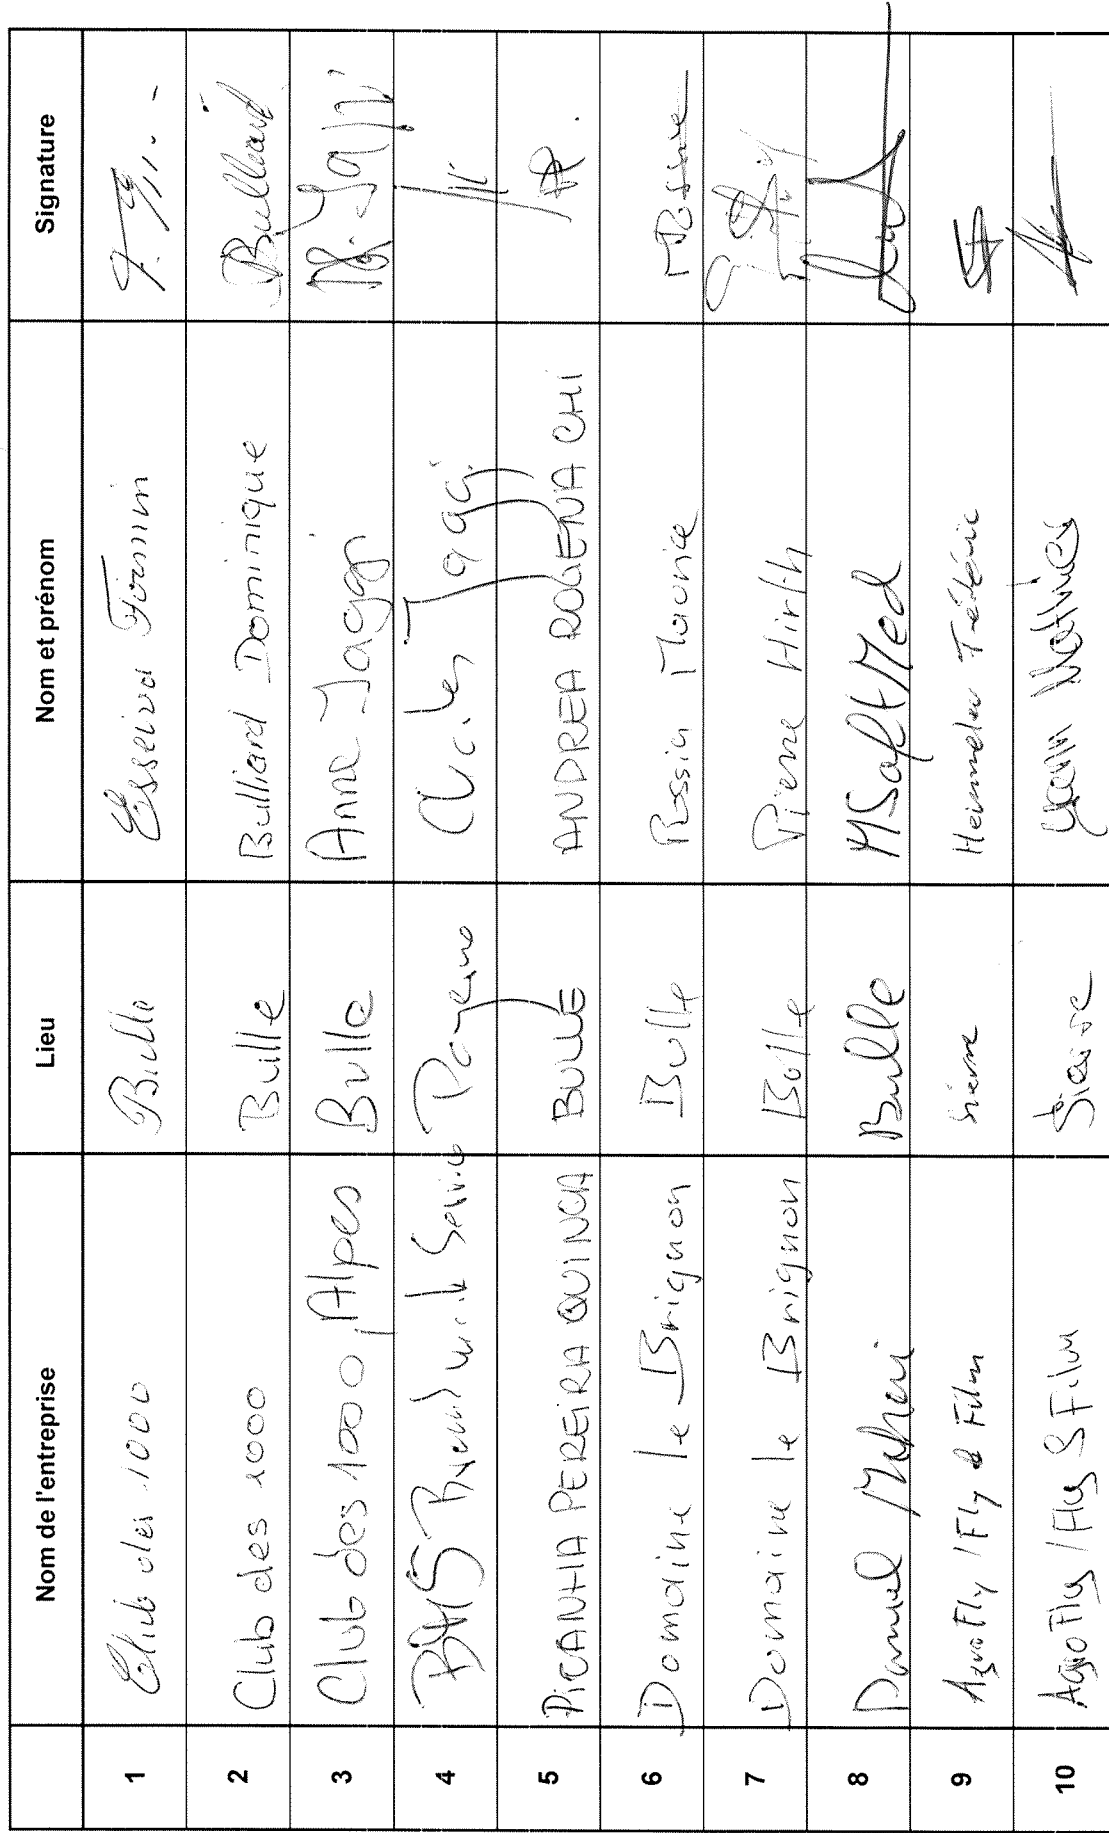 Nom de l'entreprise Lieu Nom et prénom Signature
1 Club des 1000 Bulle Esseiva Firmin
2 Club des 1000 Bulle Bulliard Dominique Bulliard
3 Club des 1000, Alpes Bulle Anne Jaggi A. Jaggi
4 Service Payerne Jaggi
5 PICANHA PEREIRA QUINCA BULLE ANDREA ROGENA CHI
6 Domaine le Brignon Bulle Rossin Maurice
7 Domaine le Brignon Bulle Pierre Hirth
8 Daniel Bulle MSaftMed
9 AgroFly / Fly & Film Sierre Frédéric
10 AgroFly / Fly & Film Sierre